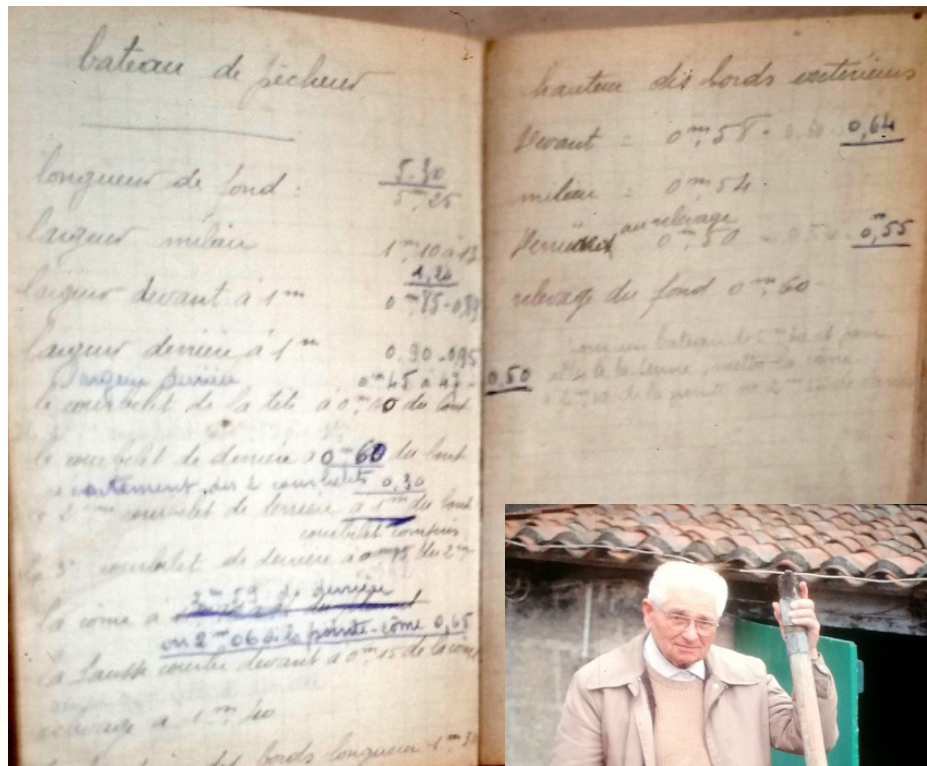 bateau de pêcheur
longueur de fond : 5.30
5m,25
largeur milieu 1m,10 à 12
1,20
largeur devant à 1m 0m,85-0,89
largeur derrière à 1m 0,90-0,95
largeur derrière 0m45 à 47 - 0,50
le courbelet de la tête à du bout
le courbelet de derrière à 0m60 du bout
écartement des 2 courbelets 0,30
2ème courbelet de derrière à 1m du bout
courbelet compris
3e courbelet de derrière à
la côme à 2m59 de derrière
ou 2m06 de la pointe-côme 0,65
la fausse courbe devant à 0m15 de la côme
relevage à 1m,40
des bords longueur
hauteur des bords extérieurs
devant = 0m,58 - 0,64
milieu = 0m54.
derrière au relevage 0m50 - 0m,55
relevage du fond 0m,60
pour un bateau de
mettre la côme
de la pointe ou